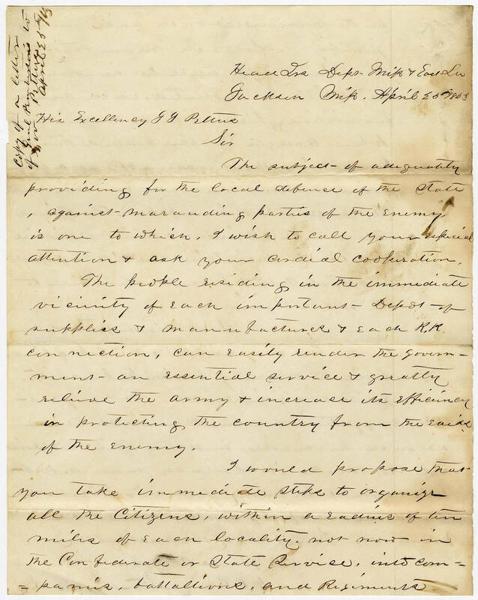 Copy of a letter
of Genl Pemberton's to
Gov. Pettus
April 25th/63
Head Qrs Dept. Miss & East La
Jackson Miss. April 25th 1863
His Excellency J J Pettus
Sir
The subject of adequately
providing for the local defense of the State
, against marauding parties of the enemy
is one to which, I wish to call your especial
attention & ask your cordial cooperation.
The people residing in the immediate
vicinity of each important Depot of
supplies & manufactures & each R.R
connection, can easily render the Govern-
ment an essential service & greatly
relieve the army & increase its efficiency
in protecting the country from the raids
of the enemy.
I would propose that
you take immediate steps to organize
all the Citizens, within a radius of ten
miles of each locality, not now in
the Confederate or State Service, into com-
-panies, battalions, and Regiments